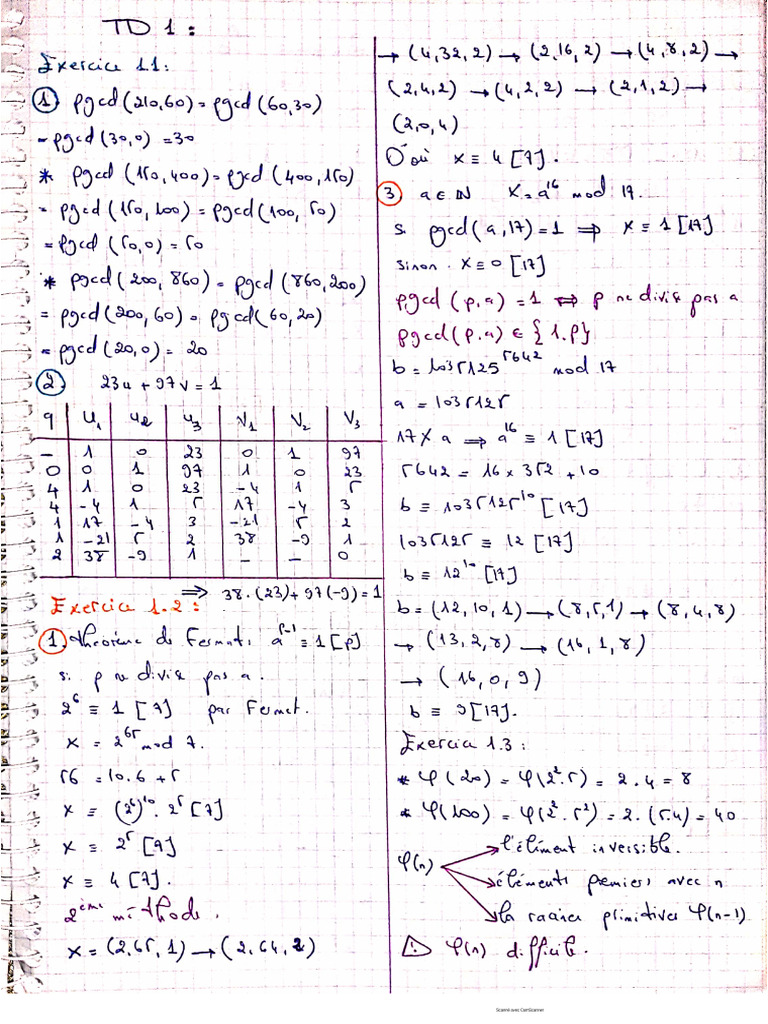 TD 1 :
Exercice 1.1 :
1) pgcd(210,60) = pgcd(60,30)
= pgcd(30,0) = 30
* pgcd(150,400) = pgcd(400,150)
= pgcd(150,100) = pgcd(100,50)
= pgcd(50,0) = 50
* pgcd(200,860) = pgcd(860,200)
= pgcd(200,60) = pgcd(60,20)
= pgcd(20,0) = 20
2) 23u + 97v = 1
q | u₁ | u₂ | u₃ | v₁ | v₂ | v₃
- | 1 | 0 | 23 | 0 | 1 | 97
0 | 0 | 1 | 97 | 1 | 0 | 23
4 | 1 | 0 | 23 | -4 | 1 | 5
4 | -4 | 1 | 5 | 17 | -4 | 3
1 | 17 | -4 | 3 | -21 | 5 | 2
1 | -21 | 5 | 2 | 38 | -9 | 1
2 | 38 | -9 | 1 | - | - | 0
⟹ 38.(23) + 97(-9) = 1
Exercice 1.2 :
1. théorème de Fermat, a^{p-1} ≡ 1 [p]
si p ne divise pas a.
2⁶ ≡ 1 [7] par Fermet.
x = 2^{65} mod 7.
56 = 10.6 + 5
x ≡ (2⁶)^{10} . 2⁵ [7]
x ≡ 2⁵ [7]
x ≡ 4 [7].
2ème méthode.
x = (2,65,1) → (2,64,2)
→ (4,32,2) → (2,16,2) → (4,8,2) →
(2,4,2) → (4,2,2) → (2,1,2) →
(2,0,4)
D'où x ≡ 4 [7].
3) a ∈ ℕ X = a^{16} mod 17.
si pgcd(a,17) = 1 ⟹ x ≡ 1 [17]
sinon. x ≡ 0 [17]
pgcd(p,a) = 1 ⟺ p ne divise pas a
pgcd(p,a) ∈ {1,p}
b = 1035125^{5642} mod 17
a = 1035125
17 ∤ a ⟹ a^{16} ≡ 1 [17]
5642 = 16 × 352 + 10
b ≡ 1035125^{10} [17]
1035125 ≡ 12 [17]
b ≡ 12^{10} [17]
b = (12,10,1) → (8,5,1) → (8,4,8)
→ (13,2,8) → (16,1,8)
→ (16,0,9)
b ≡ 9 [17].
Exercice 1.3 :
* φ(20) = φ(2².5) = 2.4 = 8
* φ(100) = φ(2².5²) = 2.(5.4) = 40
φ(n) → l'élément inversible.
→ éléments premiers avec n
→ la racines primitives φ(n-1)
⚠ φ(n) difficile.
Scanné avec CamScanner